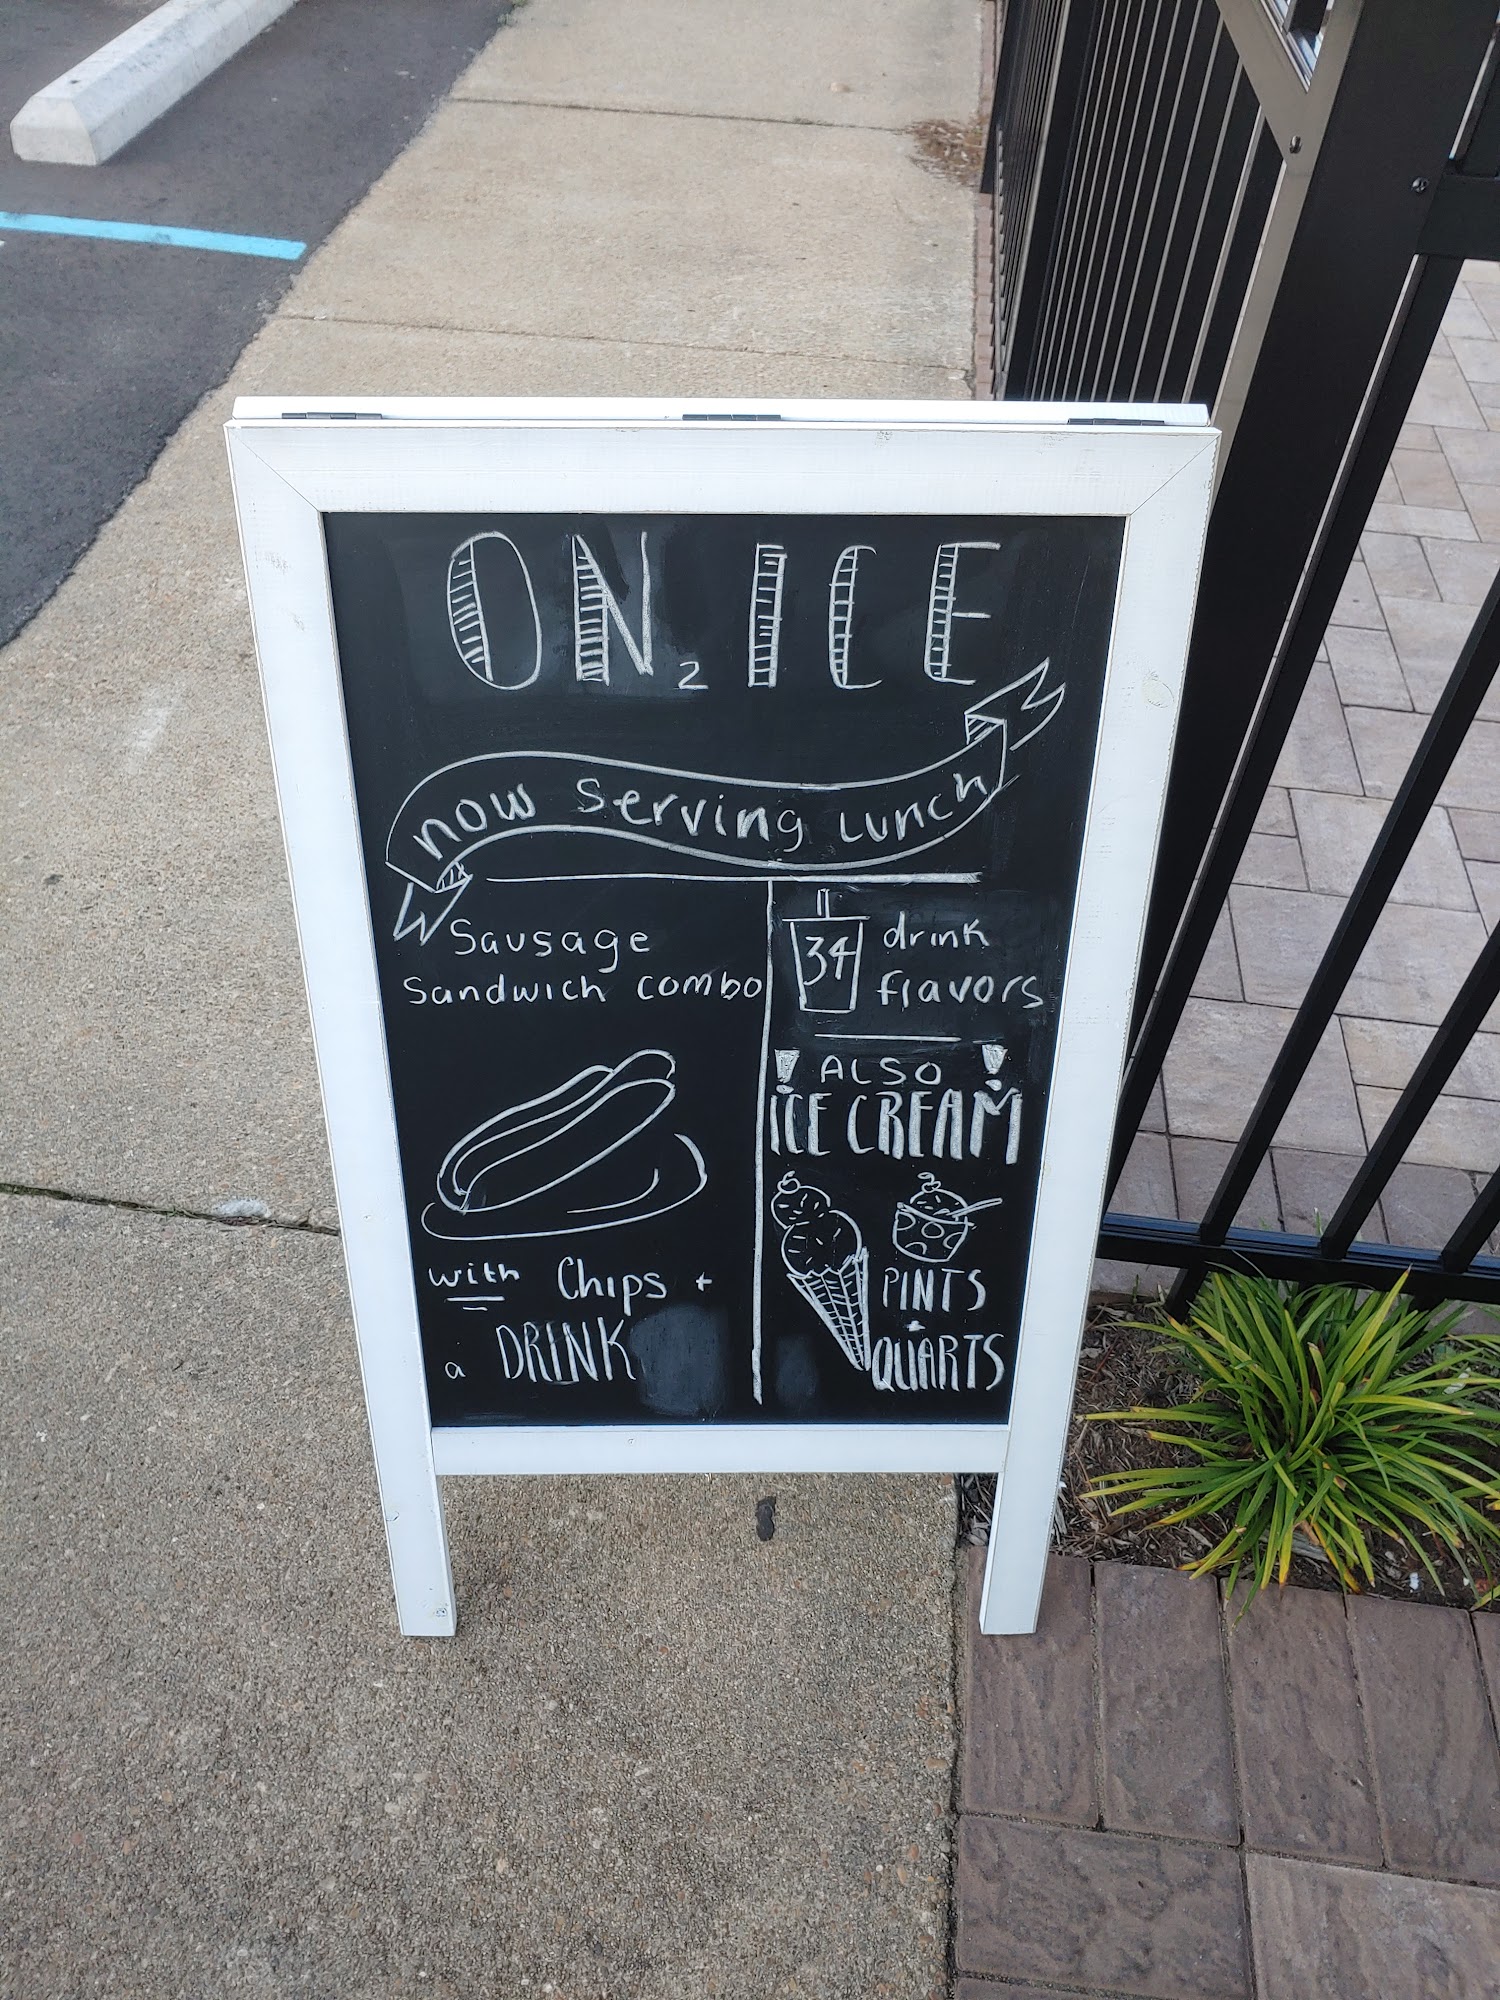 ON2 ICE
now serving Lunch
Sausage
Sandwich combo
with Chips +
a DRINK
34 drink
flavors
ALSO
ICE CREAM
PINTS
+
QUARTS